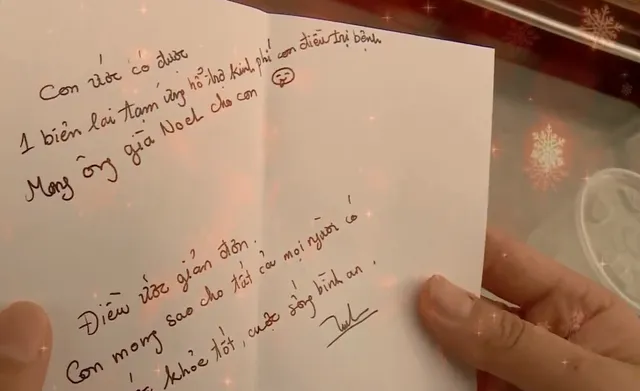 Con ước có được
1 biên lai tạm ứng hỗ trợ kinh phí con điều trị bệnh
Mong ông già Noel cho con
Điều ước giản đơn.
Con mong sao cho tất cả mọi người có
khỏe tốt, cuộc sống bình an.